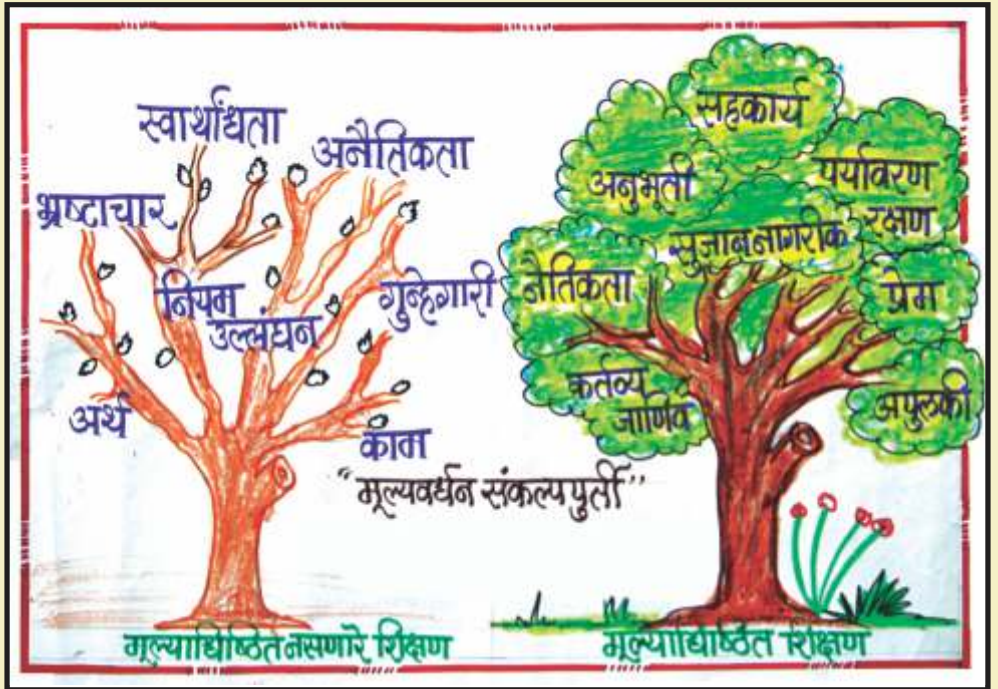 स्वार्थांधता
अनैतिकता
भ्रष्टाचार
नियम
उल्लंघन
गुन्हेगारी
अर्थ
काम
"मूल्यवर्धन संकल्पपुर्ती"
मूल्याधिष्ठित नसणारे शिक्षण
सहकार्य
अनुभूती
पर्यावरण
रक्षण
सुजाबनागरीक
नैतिकता
प्रेम
कर्तव्य
जाणिव
अपुलकी
मूल्याधिष्ठित शिक्षण